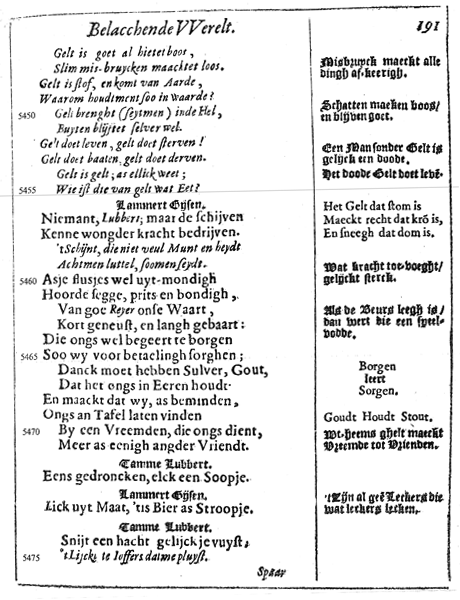 Belacchende VVerelt. 191
Gelt is goet al hietet boos,
Slim mis-bruycken maacktet loos.
Gelt is stof, en komt van Aarde,
Waarom houdtment soo in waarde?
5450 Gelt brenght (seytmen) inde Hel,
Buyten blijftet selver wel.
Gelt doet leven, gelt doet sterven!
Gelt doet baaten, gelt doet derven.
Gelt is gelt; as ellick weet;
5455 Wie ist die van gelt wat Eet?
Lammert Gijsen.
Niemant, Lubbert; maar de schijven
Kenne wongder kracht bedrijven.
'tSchijnt, die niet veul Munt en heydt
Achtmen luttel, soomen seydt.
5460 Asje flusjes wel uyt-mondigh
Hoorde segge, prits en bondigh,
Van goe Reyer onse Waart,
Kort geneust, en langh gebaart:
Die ongs wel begeert te borgen
5465 Soo wy voor betaelingh sorghen;
Danck moet hebben Sulver, Gout,
Dat het ongs in Eeren houdt
En maackt dat wy, as beminden,
Ongs an Tafel laten vinden
5470 By een Vreemden, die ongs dient,
Meer as eenigh angder Vriendt.
Tamme Lubbert.
Eens gedroncken, elck een Soopje.
Lammert Gijsen.
Lick uyt Maat, 'tis Bier as Stroopje.
Tamme Lubbert.
Snijt een hacht gelijck je vuyst,
5475 'tLijckt te Ioffers datme pluyst.
Misbruyck maeckt alle
dingh afkeerigh.
Schatten maeken boos/
en blijven goet.
Een Man sonder Gelt is
gelyck een doode.
Het doode Gelt doet levē.
Het Gelt dat stom is
Maeckt recht dat krō is,
En sneegh dat dom is.
Wat kracht toe-voeght/
gelyckt sterck.
Als de Beurs leegh is/
dan wert die een speel-
vodde.
Borgen
leert
Sorgen.
Goudt Houdt Stout.
Wt-heems ghelt maeckt
Vreemde tot Vrienden.
'tZijn al geē Leckers die
wat leckers lecken.